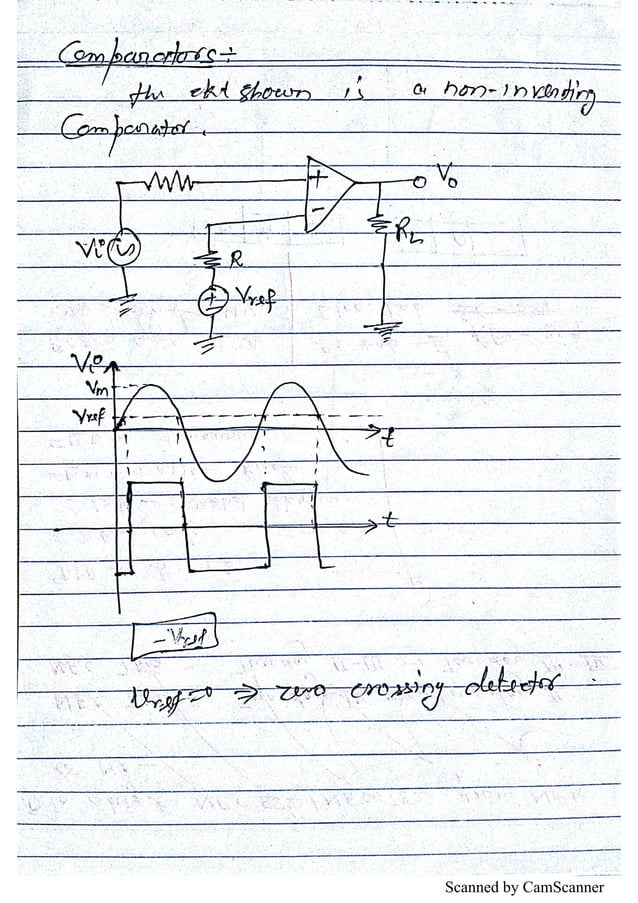 Comparators:-
the ckt shown is a non-inverting
Comparator.
+
-
Vo
RL
Vi
R
+
Vref
Vi
Vm
Vref
t
t
-Vref
Vref=0 ⇒ zero crossing detector
Scanned by CamScanner